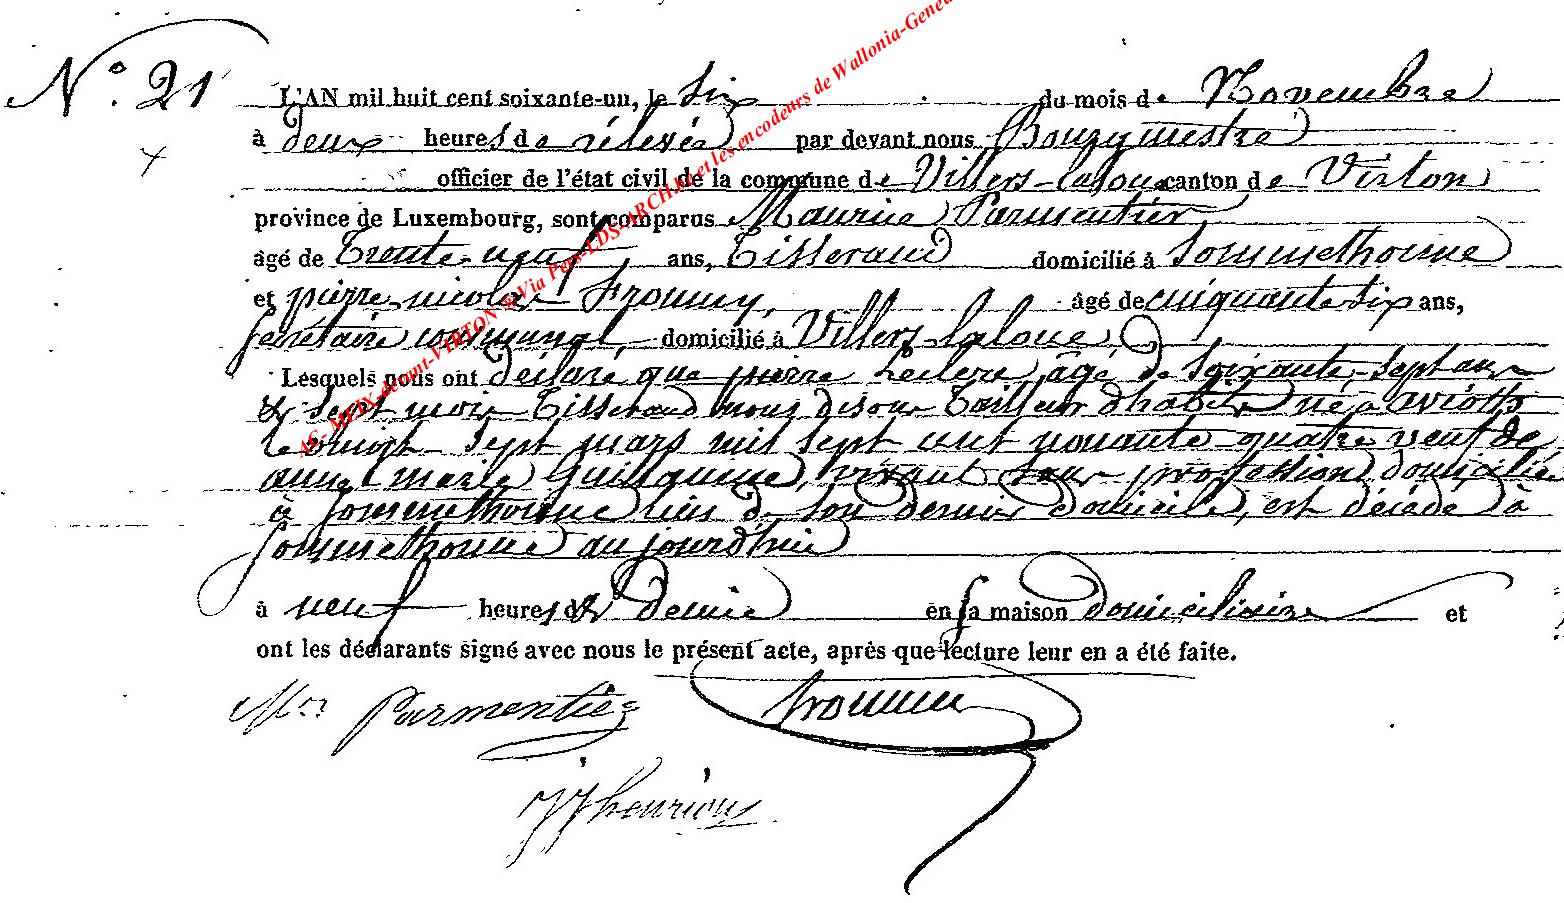 N.° 21
L'AN mil huit cent soixante-un, le six du mois de Novembre
à deux heures de rélevée par devant nous Bourgmestre
officier de l'état civil de la commune de Villers-laloue canton de Virton
province de Luxembourg, sont comparus Maurice Parmentier
âgé de Trente-neuf ans, Tisserand domicilié à Sommethonne
et pierre nicolas fromny, âgé de cinquante six ans,
secrétaire communal, domicilié à Villers-laloue,
Lesquels nous ont déclaré que pierre Leclere, âgé de soixante-sept ans
& sept mois Tisserand nous disons Tailleur d'habits né à aviotte
le vingt-sept mars mil sept cent nonante quatre veuf de
anne marie Guillaume, vivant sans profession domiciliée
à sommethonne lieu de son dernier domicile, est décédé à
sommethonne aujourd'hui
à neuf heures & demie en sa maison domiciliaire et
ont les déclarants signé avec nous le présent acte, après que lecture leur en a été faite.
Mce Parmentier
JJ henrion
AC- MEIX-devant-VIRTON ® Via Pers-LDS-ARCH.Et et les encodeurs de Wallonia-Genea